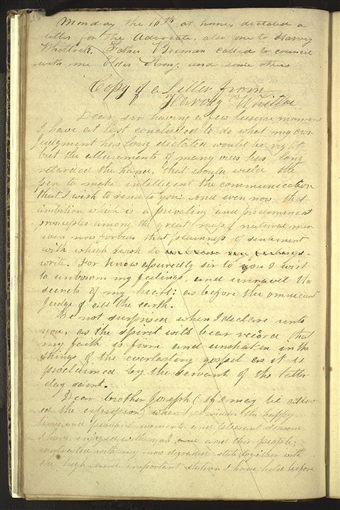 Monday the 16th at home, dictated a
letter for the Advocate, also one to Harvey
Whitlock, Father Beeman called to council
with me Elder Strong and some others
Copy of a Letter from
Harvey Whitlock
Dear sir having a few leisure moments
I have at last concluded to do what my own
Judgment has long dictated would be right
but the allurements of many vices has long
retarded the hand, that should wield the
pen to make intelligent the communication
that I wish to send to you: And even now that
ambition which is a prevailing and predominant
principles among the great mass of natural men
even now forbids that plainness of sentiment
with which I wish to
write. For know assuredly sir to you I wish
to unbosom my feelings, and unravel the
secrets of my heart: as before the omnicient
Judge of all the earth.
Be not surprised when I declare unto
you, as the spirit will bear record that
my faith is firm and unshaken in the
things of the everlasting gospel as it is
proclaimed by the servants of the latter-
day saints.
Dear brother Joseph (If I may be allow-
ed the expression) when I consider the happy
times and peaceful moments, and pleasant seasons
I have enjoyed with you, and this people;
contrasted with my now degraded state; together with
the high, and important station I have held before